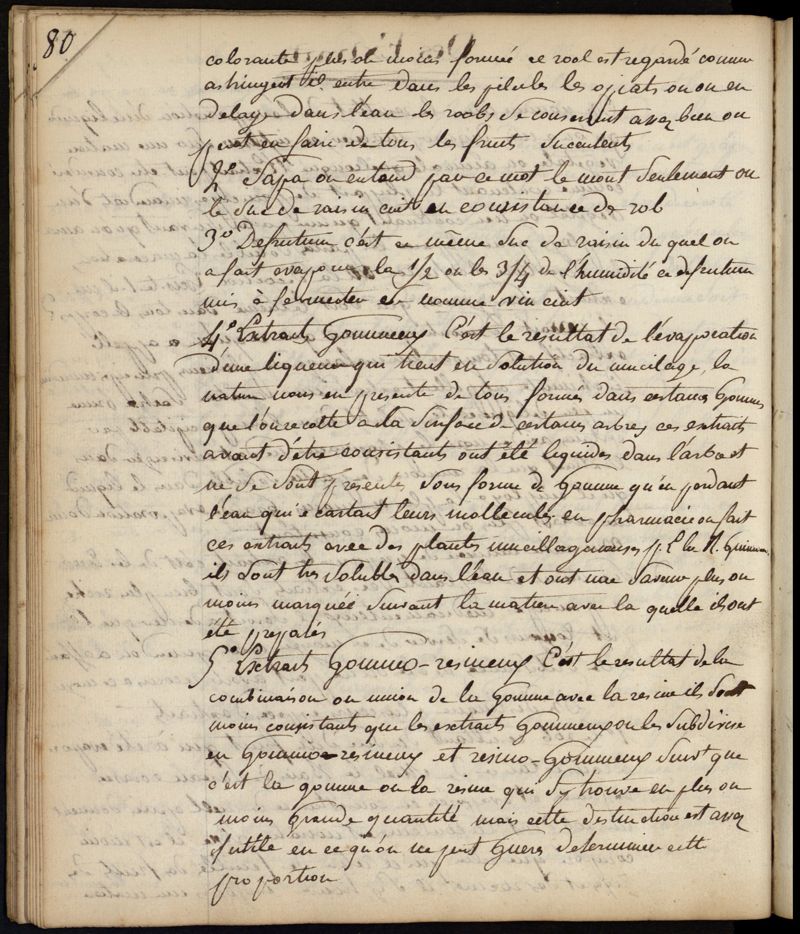 80
colorante plus de moins formée ce rool est regardé comme
astringent il entre dans les pilules les opiats on en
delaye dans l'eau les roobs se conservent assez bien on
peut en faire de tous les fruits succulents
2º Sapa on entend par ce mot le mout seulement ou
le suc de raisin cuit en consistance de rob
3º Defrutum c'est ce même suc de raisin du quel on
a fait evaporer la 1/2 ou les 3/4 de l'humidité ce defrutum
mis à fermenter est nommé vin cuit
4º Extraits Gommeux C'est le resultat de l'évaporation
d'une liqueur qui tient en solution du mucilage, la
nature nous en presente de tous formés dans certaines Gommes
que l'on recolte a la surface de certains arbres ces extraits
avant d'être consistants ont été liquides dans l'arbre et
ne se sont presentes sous forme de Gomme qu'en perdant
l'eau qui ecartait leurs mollecules, en pharmacie on fait
ces extraits avec des plantes mucillagineuses p. E les R. Guimauve
ils sont tres solubles dans l'eau et ont une saveur plus ou
moins marquée suivant la matiere avec la quelle ils ont
été preparés
5º Extraits Gommo-resineux C'est le resultat de la
combinaison ou union de la Gomme avec la resine ils sont
moins consistants que les extraits Gommeux on les subdivise
en Gommo-resineux et resino-Gommeux suivt que
c'est la gomme ou la resine qui s'y trouve en plus ou
moins Grande quantité mais cette destination est assez
futile en ce qu'on ne peut Guere determiner cette
proportion